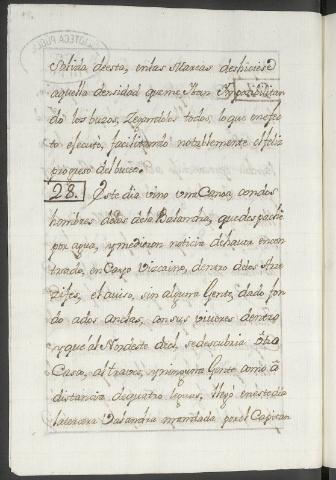 Salida de esta, en las Mareas deshiciese
aquella densidad que me Iban Imposibilitan
do los buzos, Legandolos todos, lo que en efec
to executó, facilitando notablemente el feliz
progreso del buceo.
28. Este dia vino una Canoa, con dos
hombres de los de la Balandra, que despaché
por agua, y me dieron noticia de haver encon
trado, en Cayo Vizcaino, dentro de los Arre
zifes, el aviso, sin alguna Gente, dado fon
do a dos anclas, con sus viveres dentro,
y que al Nordeste de el se descubria otra
Casco, al traves, y ninguna Gente como â
distancia de quatro leguas, llegó en este dia
la tercera Valandra mandada por el Capitan